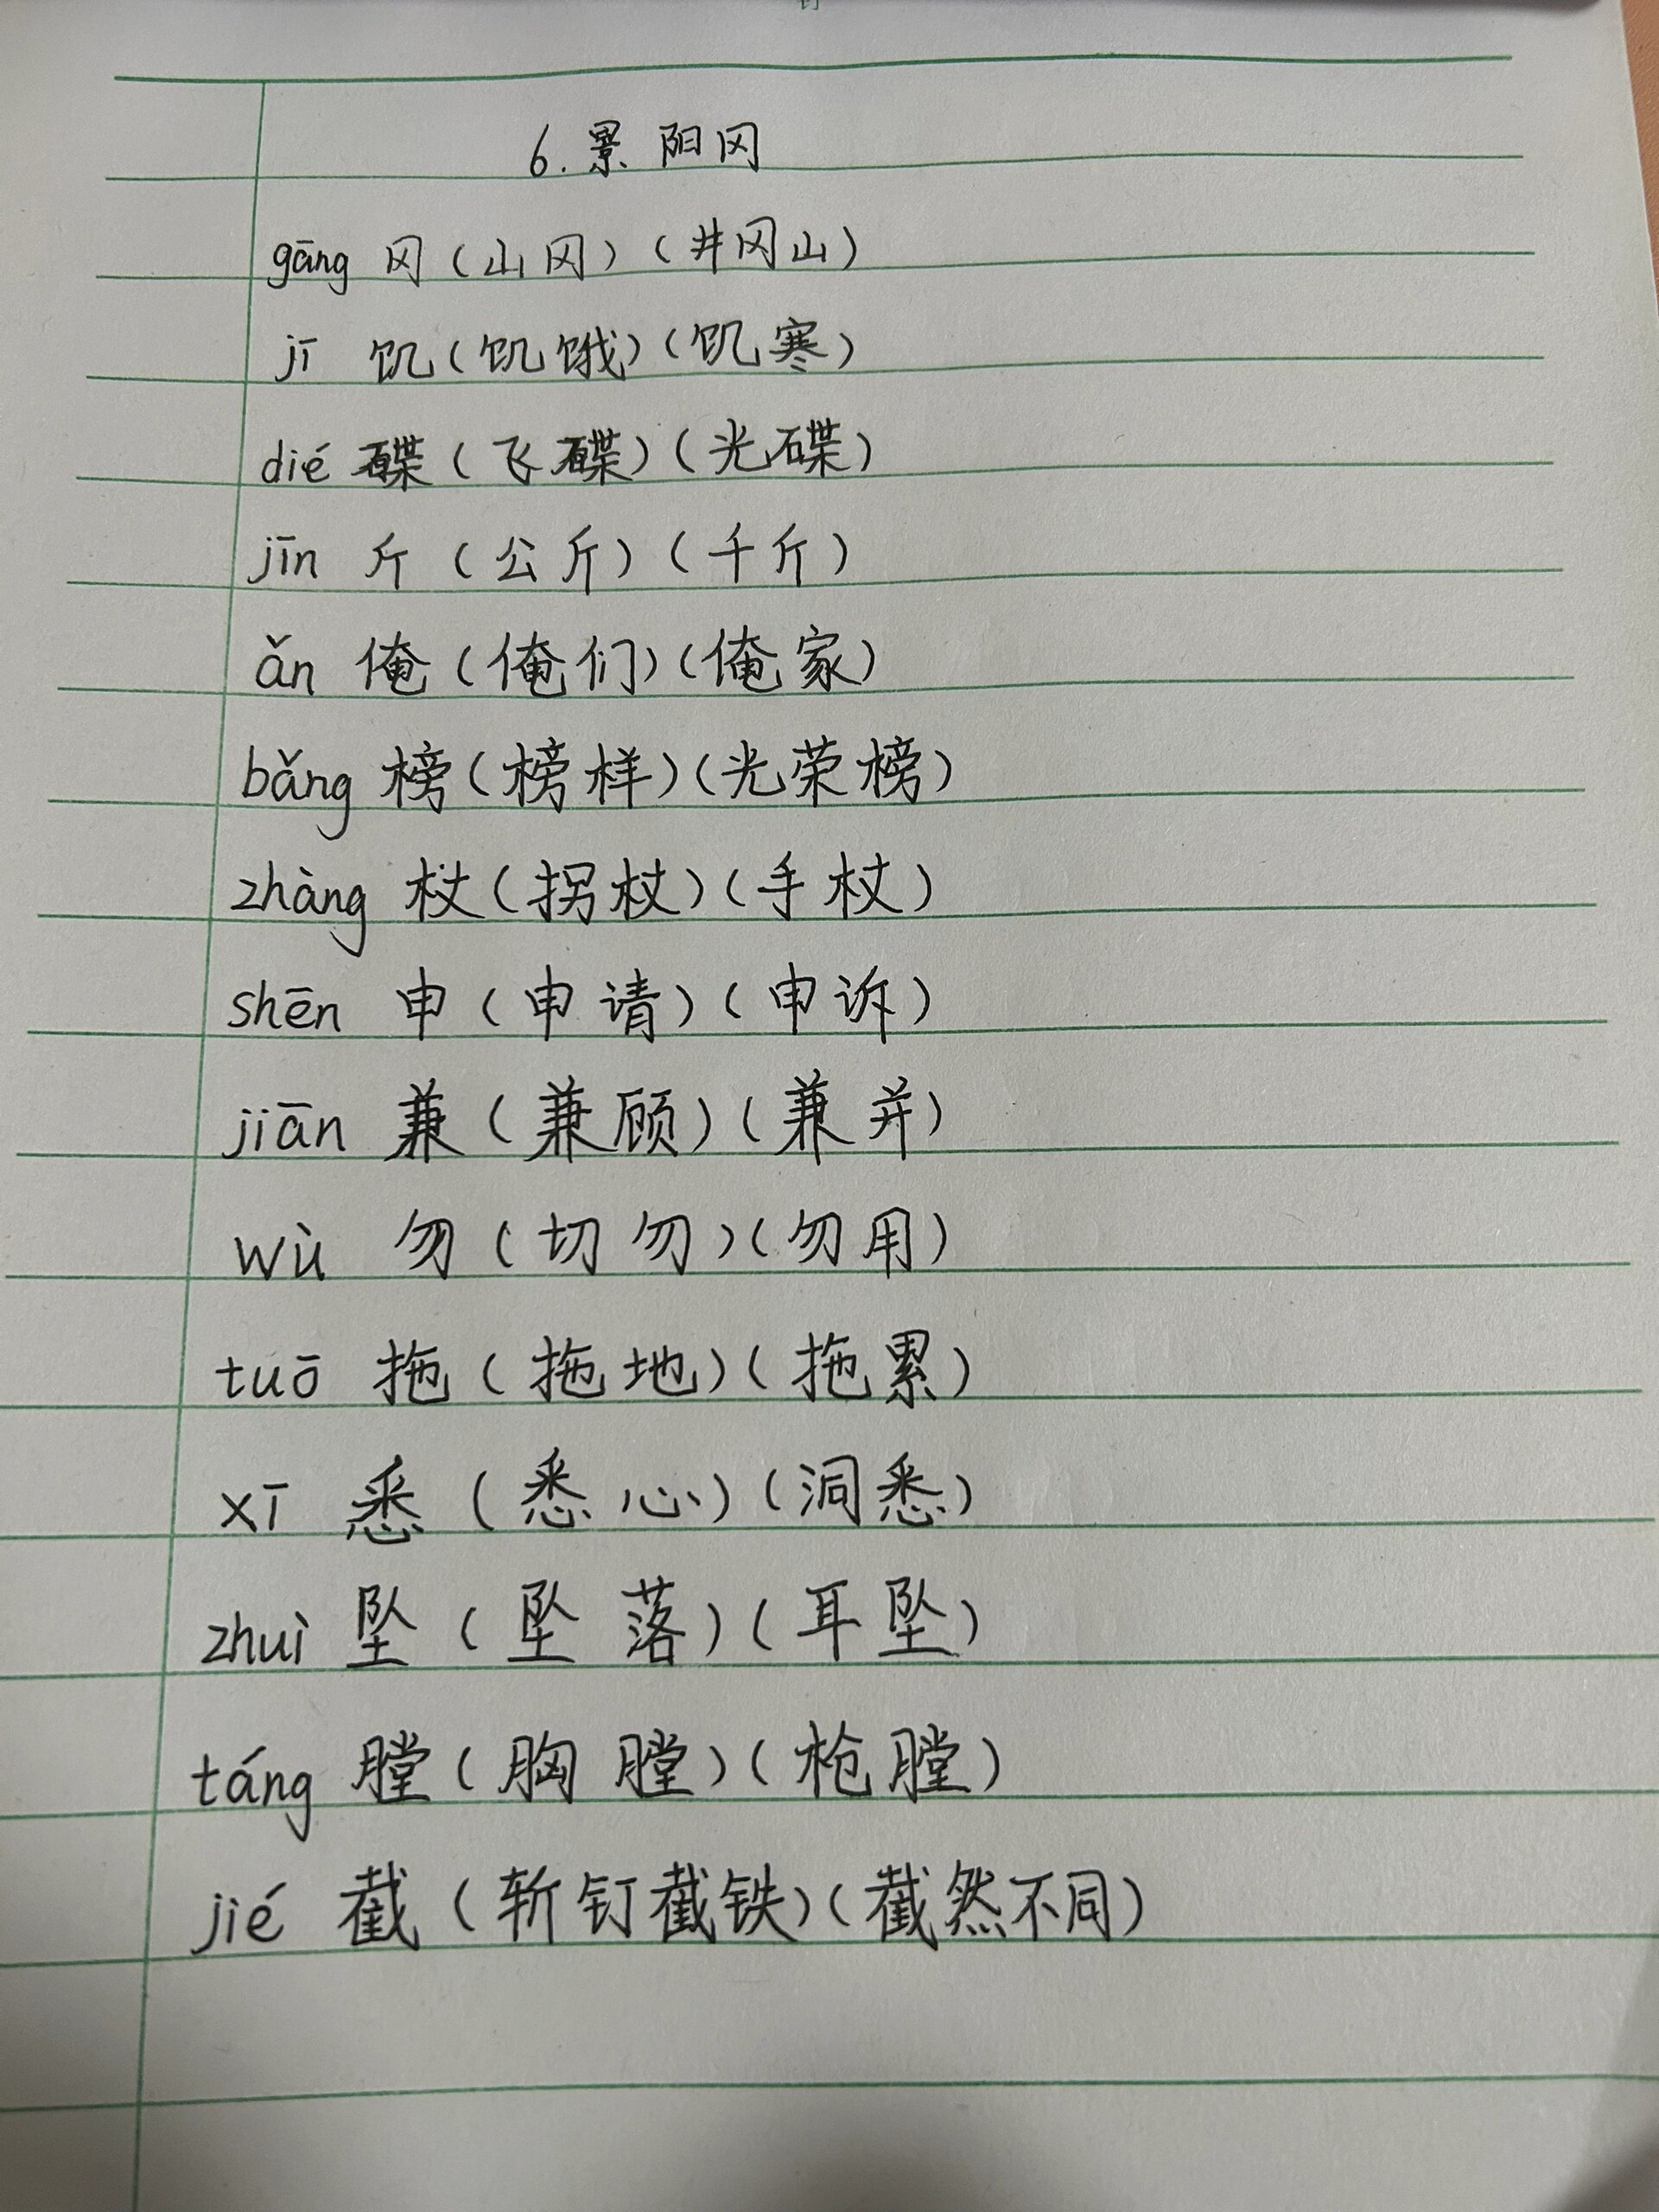 6.景阳冈
gāng 冈(山冈)(井冈山)
jī 饥(饥饿)(饥寒)
dié 碟(飞碟)(光碟)
jīn 斤(公斤)(千斤)
ǎn 俺(俺们)(俺家)
bǎng 榜(榜样)(光荣榜)
zhàng 杖(拐杖)(手杖)
shēn 申(申请)(申诉)
jiān 兼(兼顾)(兼并)
wù 勿(切勿)(勿用)
tuō 拖(拖地)(拖累)
xī 悉(悉心)(洞悉)
zhuì 坠(坠落)(耳坠)
táng 膛(胸膛)(枪膛)
jié 截(斩钉截铁)(截然不同)